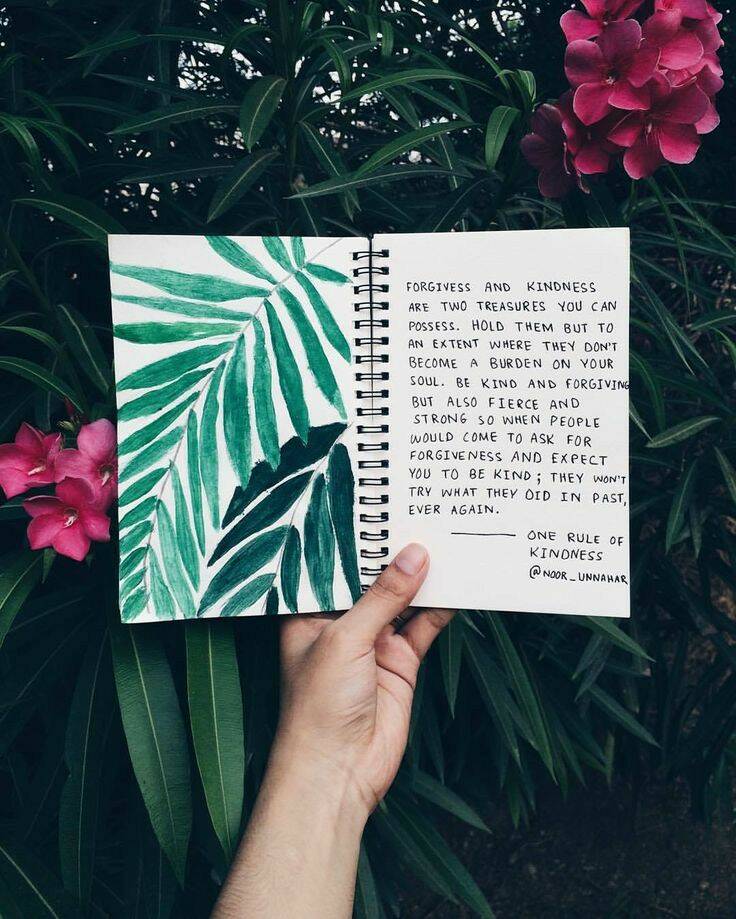 FORGIVESS AND KINDNESS
ARE TWO TREASURES YOU CAN
POSSESS. HOLD THEM BUT TO
AN EXTENT WHERE THEY DON'T
BECOME A BURDEN ON YOUR
SOUL. BE KIND AND FORGIVING
BUT ALSO FIERCE AND
STRONG SO WHEN PEOPLE
WOULD COME TO ASK FOR
FORGIVENESS AND EXPECT
YOU TO BE KIND; THEY WON'T
TRY WHAT THEY DID IN PAST,
EVER AGAIN.
—— ONE RULE OF
KINDNESS
@NOOR_UNNAHAR